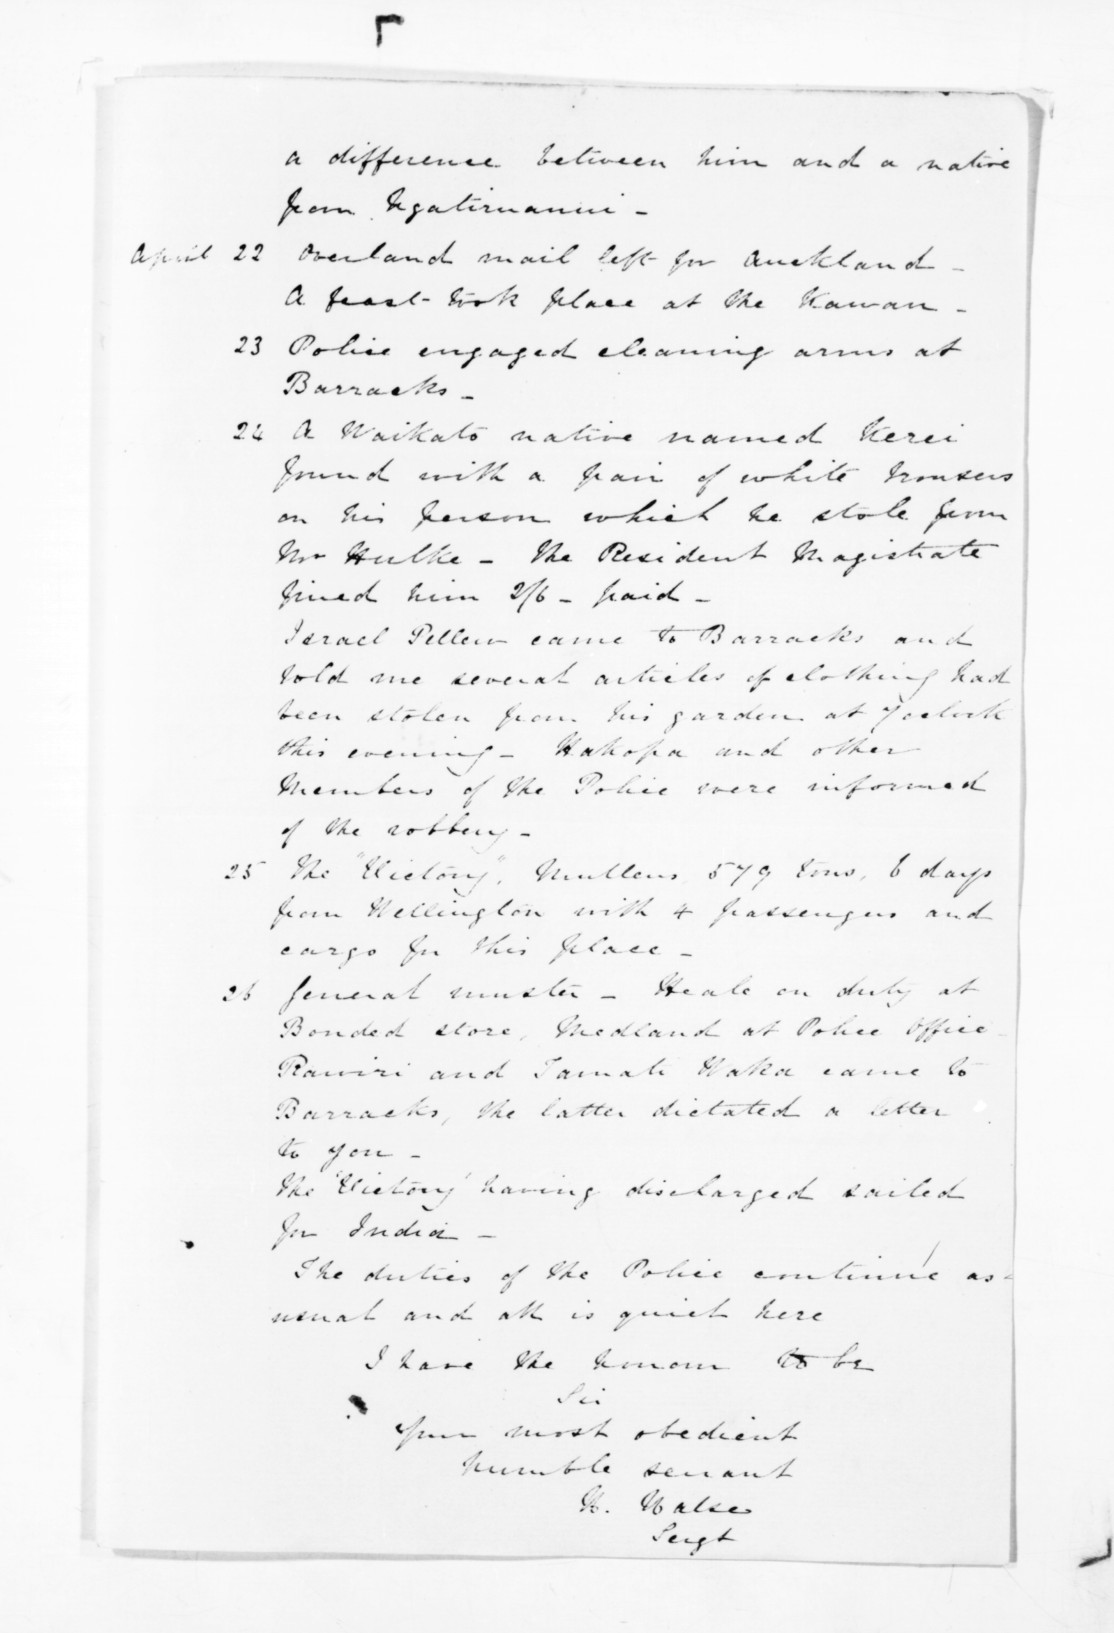 a difference between him and a native
from Ngatiruanui -
April 22 Overland mail left for Auckland -
A feast took place at the Kawau -
23 Police engaged cleaning arms at
Barracks -
24 A Waikato native named Kerei
found with a pair of white trousers
on his person which he stole from
Mr Hulke - the Resident Magistrate
fined him 2/6 - paid -
Israel Pellew came to Barracks and
told me several articles of clothing had
been stolen from his garden at 7 oclock
this evening - Hakopa and other
Members of the Police were informed
of the robbery -
25 The "Victory", Mullens, 579 tons, 6 days
from Wellington with 4 passengers and
cargo for this place -
26 General muster - Heale on duty at
Bonded store, Medland at Police Office
Rawiri and Tamati Waka came to
Barracks, the latter dictated a letter
to you -
The 'Victory' having discharged sailed
for India -
The duties of the Police continue as
usual and all is quiet here
I have the honour to be
Sir
Your most obedient
humble servant
H. Halse
Sergt